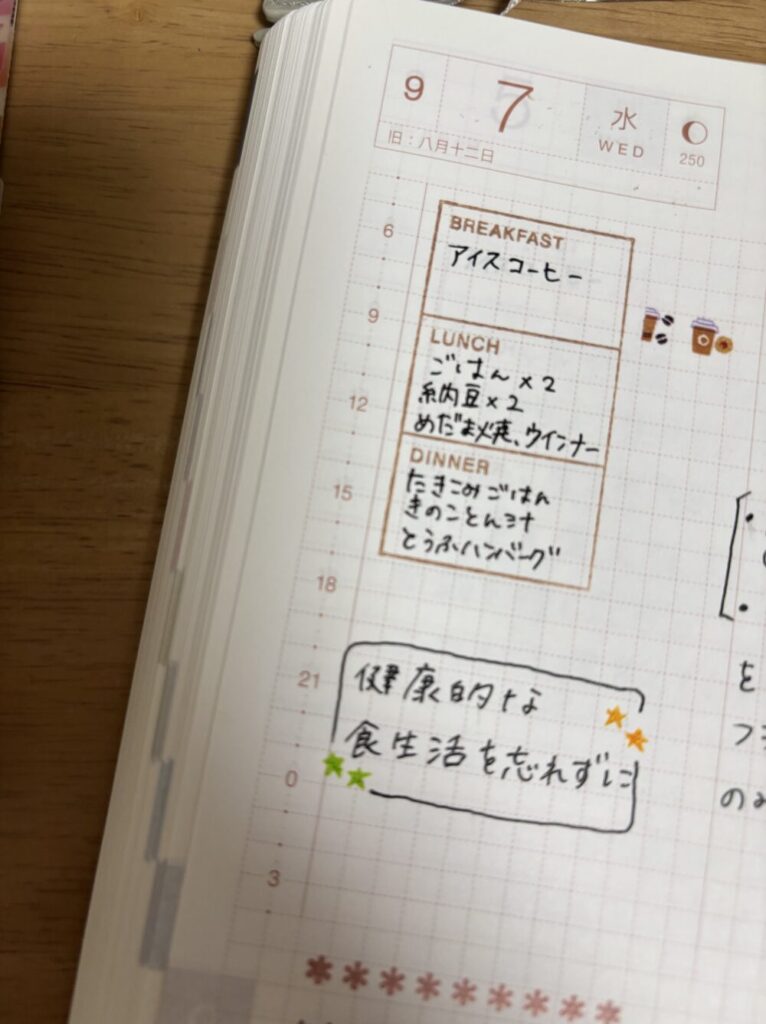 9 7 水 WED 250
旧：八月十二日
6
BREAKFAST
アイスコーヒー
9
LUNCH
ごはん×2
納豆×2
12
めだま焼、ウインナー
DINNER
たきこみごはん
15
きのことん汁
とうふハンバーグ
18
21
健康的な
食生活を忘れずに
0
3
を
フ
のみ